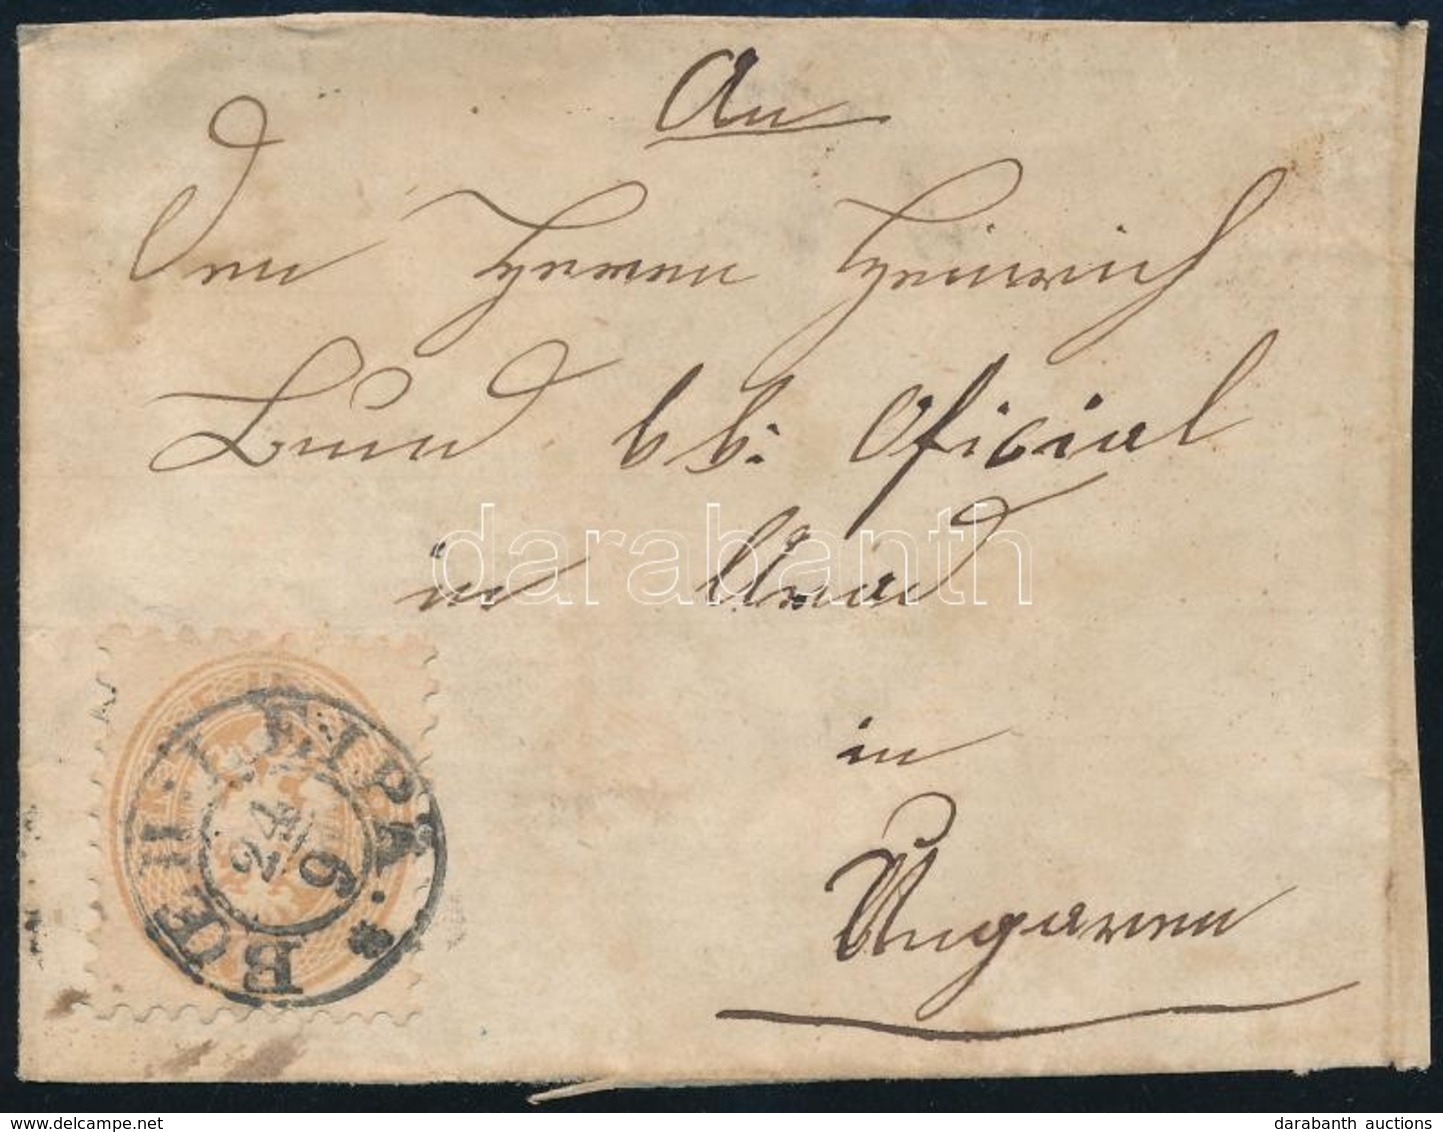 An
Den Herren Heinrich
Bund k k: Oficial
in Arad
in
Ungaren
BŒH: LEIPA.
24
9
darabanth
delcampe.net
darabanth auctions